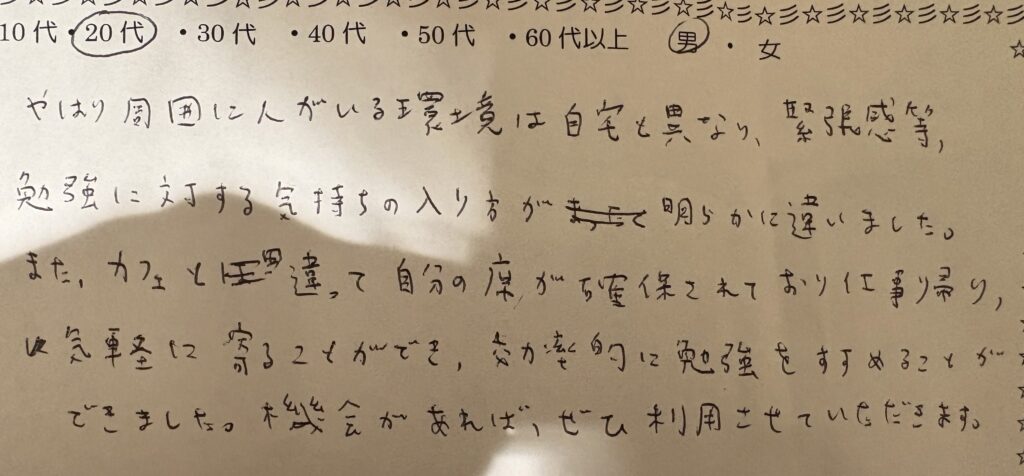 10代・20代・30代・40代・50代・60代以上 男・女
やはり周囲に人がいる環境は自宅と異なり、緊張感等、
勉強に対する気持ちの入り方が明らかに違いました。
また、カフェと違って自分の席が確保されており仕事帰り、
に気軽に寄ることができ、効率的に勉強をすすめることが
できました。機会があれば、ぜひ利用させていただきます。